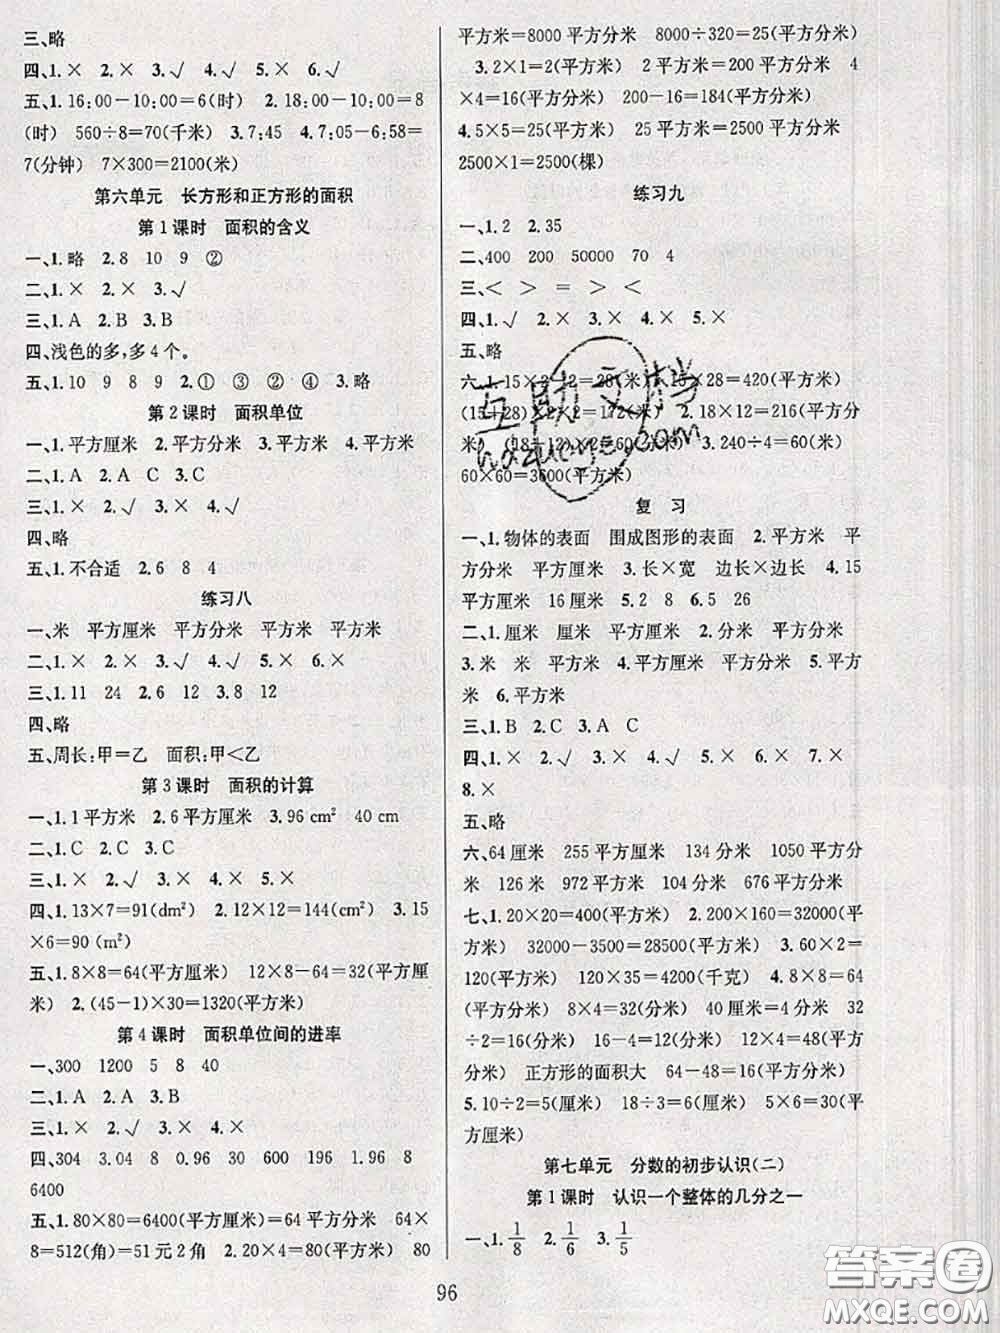 三、略
四、1.× 2.× 3.√ 4.√ 5.× 6.√
五、1.16:00－10:00＝6(时) 2.18:00－10:00＝8
(时) 560÷8＝70(千米) 3.7:45 4.7:05－6:58＝
7(分钟) 7×300＝2100(米)
第六单元 长方形和正方形的面积
第1课时 面积的含义
一、1.略 2.8 10 9 ②
二、1.× 2.× 3.√
三、1.A 2.B 3.B
四、浅色的多,多4个。
五、1.10 9 8 9 2.① ③ ② ④ 3.略
第2课时 面积单位
一、1.平方厘米 2.平方分米 3.平方米 4.平方米
二、1.C 2.A 3.C
三、1.√ 2.× 3.× 4.√
四、略
五、1.不合适 2.6 8 4
练习八
一、米 平方厘米 平方分米 平方米 平方米
二、1.× 2.× 3.√ 4.√ 5.× 6.×
三、1.11 24 2.6 12 3.8 12
四、略
五、周长:甲＝乙 面积:甲＜乙
第3课时 面积的计算
一、1.1平方米 2.6平方厘米 3.96 cm² 40 cm
二、1.C 2.C 3.C
三、1.× 2.√ 3.× 4.× 5.×
四、1.13×7＝91(dm²) 2.12×12＝144(cm²) 3.15
×6＝90 (m²)
五、1.8×8＝64(平方厘米) 12×8－64＝32(平方厘
米) 2.(45－1)×30＝1320(平方米)
第4课时 面积单位间的进率
一、300 1200 5 8 40
二、1.A 2.A 3.B
三、1.× 2.√ 3.× 4.×
四、304 3.04 8 0.08 196 1.96 8
6400
五、1.80×80＝6400(平方厘米)＝64平方分米 64×
8＝512(角)＝51元2角 2.20×4＝80(平方米) 80
平方米＝8000平方分米 8000÷320＝25(平方分米)
3.2×1＝2(平方米) 2平方米＝200平方分米 4
×4＝16(平方分米) 200－16＝184(平方分米)
4.5×5＝25(平方米) 25平方米＝2500平方分米
2500×1＝2500(棵)
练习九
一、1.2 2.35
二、400 200 50000 70 4
三、＜ ＞ ＝ ＞ ＜
四、1.√ 2.× 3.× 4.× 5.×
五、略
六、1.15×2－2＝28(米) 15×28＝420(平方米)
(15＋28)×2×2＝172(米) 2.18×12＝216(平方
米) (18＋12)×2＝60(米) 3.240÷4＝60(米)
60×60＝3600(平方米)
复 习
一、1.物体的表面 围成图形的表面 2.平方米 平
方分米 平方厘米 3.长×宽 边长×边长 4.15
平方厘米 16厘米 5.2 8 6.5 26
二、1.厘米 厘米 平方厘米 2.分米 平方分米
3.米 米 平方米 4.平方厘米 平方分米 5.平方
米 6.平方米
三、1.B 2.C 3.A C
四、1.× 2.√ 3.× 4.× 5.× 6.× 7.×
8.×
五、略
六、64厘米 255平方厘米 134分米 1050平方分
米 126米 972平方米 104分米 676平方分米
七、1.20×20＝400(平方米) 2.200×160＝32000(平
方米) 32000－3500＝28500(平方米) 3.60×2＝
120(平方米) 120×35＝4200(千克) 4.8×8＝64
(平方分米) 8×4＝32(分米) 40厘米＝4分米 32
÷2＝16(分米) 16－4＝12(分米) 12×4＝48(平方
分米) 正方形的面积大 64－48＝16(平方分米)
5.10÷2＝5(厘米) 18÷3＝6(厘米) 5×6＝30(平
方厘米)
第七单元 分数的初步认识(二)
第1课时 认识一个整体的几分之一
一、1.1/8 2.1/6 3.1/5
96
互助文档
hazuoye.com
答案圈
MXQE.COM